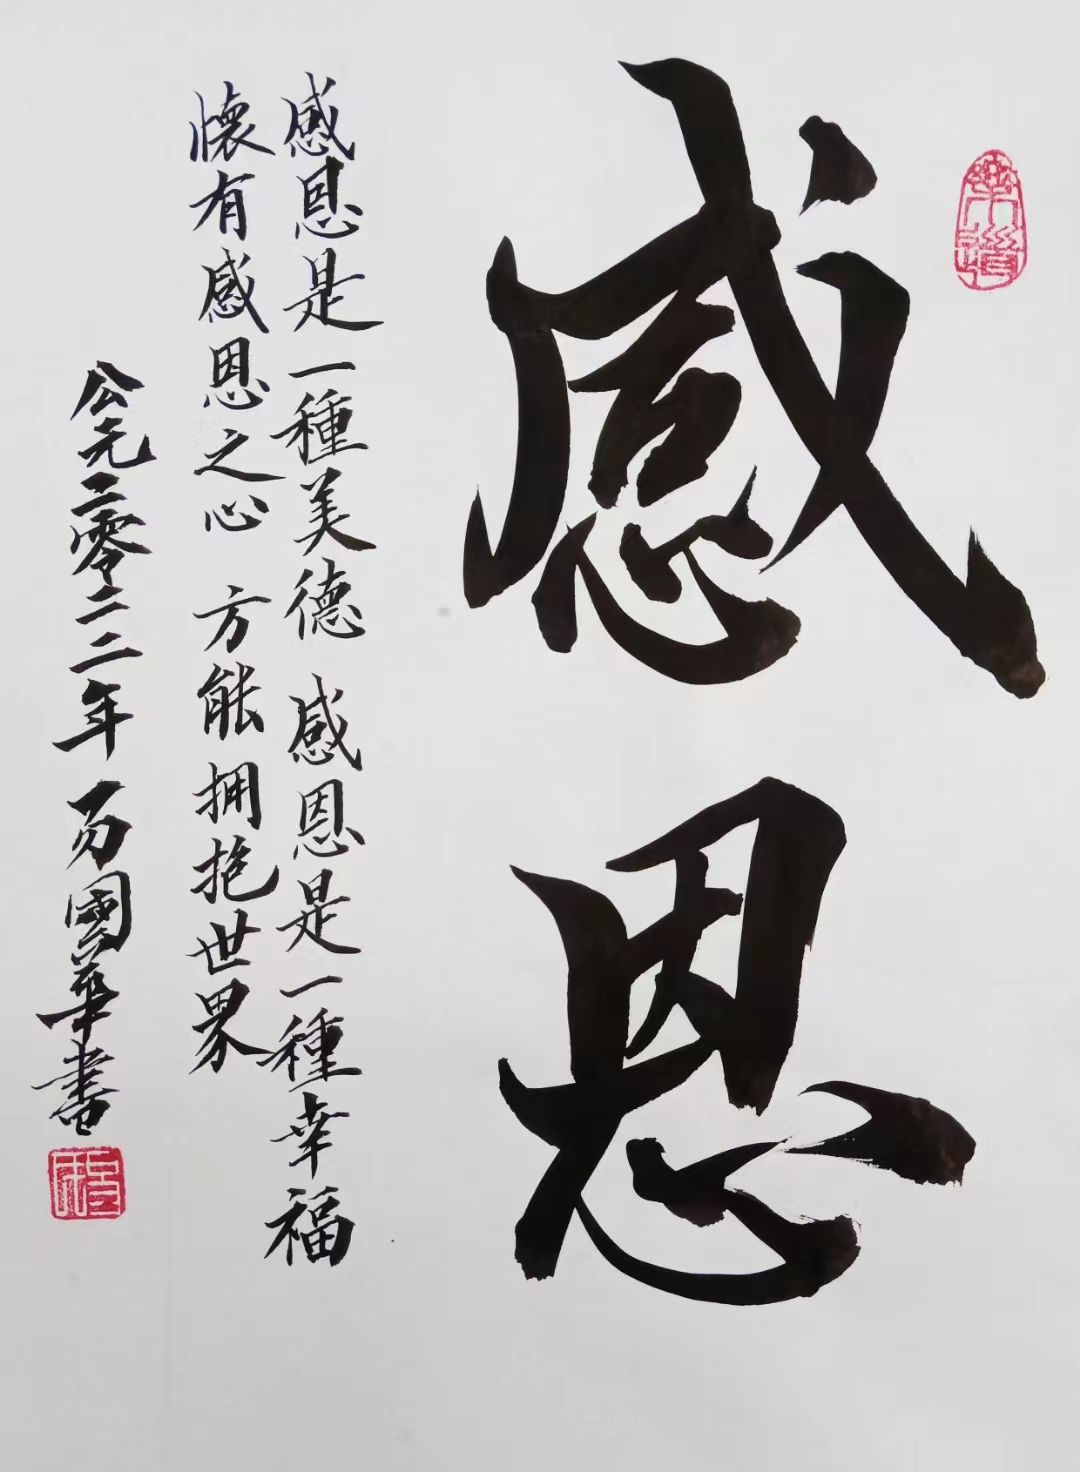 感恩
感恩是一種美德 感恩是一種幸福
懷有感恩之心 方能拥抱世界
公元二零二二年 万國華書